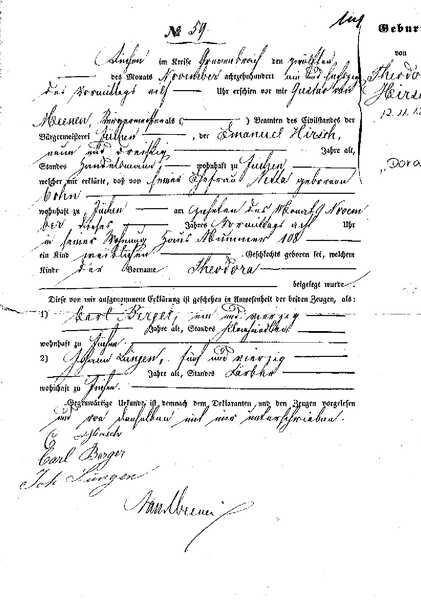 № 59.
Geburt
von
Theodo
Hirsc
12.11.
"Dora
Jüchen im Kreise Grevenbroich den zwölften
des Monats November achtzehnhundert ein und siebzig
des Vormittags elf Uhr erschien vor mir Gustav van
Meenen, Bürgermeister als ( ) Beamten des Civilstandes der
Bürgermeisterei Jüchen, der Emanuel Hirsch,
neun und dreißig Jahre alt,
Standes Handelsmann, wohnhaft zu Jüchen
welcher mir erklärte, daß von seiner Ehefrau Netta geborene
Cohn
wohnhaft zu Jüchen am des Monats Novem
ber dieses Jahres Vormittags Uhr
in seiner Wohnung Haus Nummer 108
ein Kind weiblichen Geschlechts geboren sei, welchem
Kinde der Vorname Theodora
beigelegt wurde.
Diese von mir aufgenommene Erklärung ist geschehen in Anwesenheit der beiden Zeugen, als:
1) Carl Berger, ein und vierzig
Jahre alt, Standes
wohnhaft zu Jüchen
2) Johann Lürgen, fünf und vierzig
Jahre alt, Standes Färber
wohnhaft zu Jüchen.
Gegenwärtige Urkunde ist demnach dem Deklaranten und den Zeugen vorgelesen
und von denselben mit mir unterschrieben.
E Hirsch
Carl Berger
Joh Lürgen
van Meenen